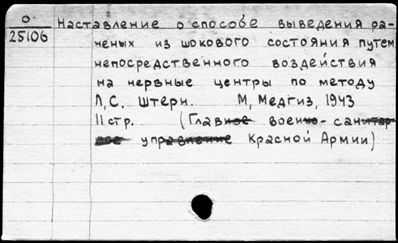 О Наставление о способе выведения ра-
25106 неных из шокового состояния путем
непосредственного воздействия
на нервные центры по методу
Л.С. Штерн. М, Медгиз, 1943
11 стр. (Главное военно-санитар
ное управление Красной Армии)